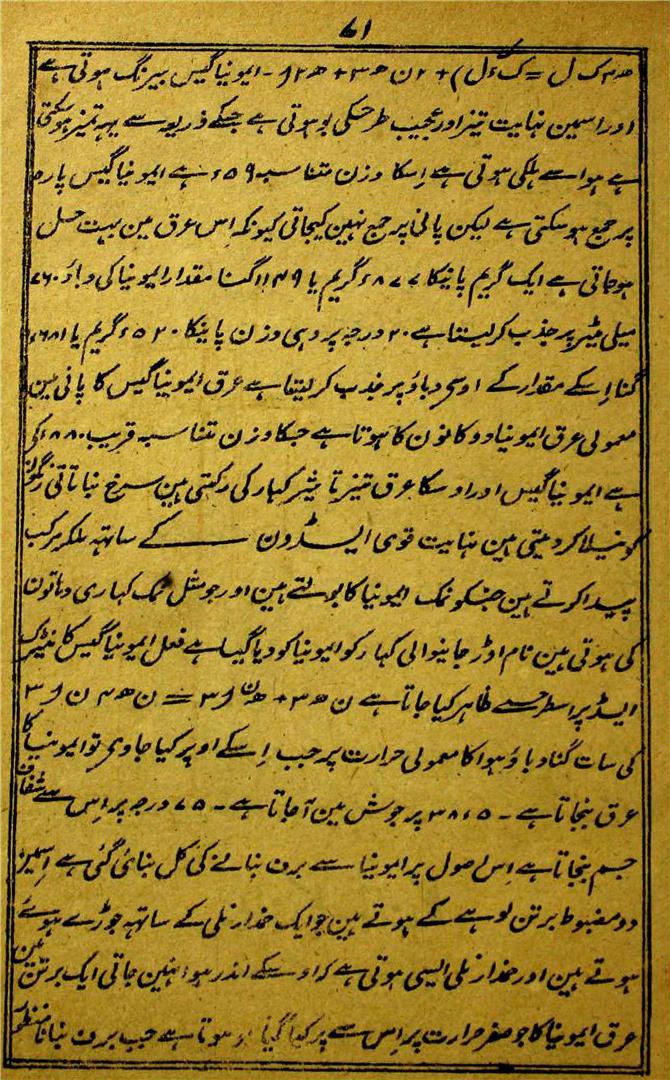 ۶۱
ھ ۴ ک ل = ک ل) + ۲ ن ھ ۳ + ھ ۲ - ایمونیا گیس بیرنگ ہوتی ہے
اور اسمین نہایت تیز اور عجیب طرحکی بو ہوتی ہے جسکے ذریعہ سے یہہ تمیز ہوسکتی
ہے ہوا سے ہلکی ہوتی ہے اسکا وزن متناسبہ ۵۹ء ہے ایمونیا گیس پارہ
پر جمع ہوسکتی ہے لیکن پانی پر جمع نہین کیجاتی کیونکہ اس عرق مین بہت حل
ہوجاتی ہے ایک گریم پانیکا ۸۷۷ء گریم یا ۱۱۴۹ گنا مقدار ایمونیا کی دباؤ ۷۶۰
میلی میٹر پر جذب کرلیتا ہے ۲۰ درجہ پر وہی وزن پانیکا ۵۲۰ء گریم یا ۶۸۱ء
گنا اسکے مقدار کے اوسی دباؤ پر جذب کرلیتا ہے عرق ایمونیا گیس کا پانی مین
معمولی عرق ایمونیا دوکانون کا ہوتا ہے جسکا وزن متناسبہ قریب ۸۸۰ء کی
ہے ایمونیا گیس اور اوسکا عرق تیز تاثیر کہار کی رکہتی ہین سرخ نباتاتی رنگونکو
کو نیلا کردیتی ہین نہایت قوی ایسڈون کے ساتہہ ملکر مرکب
پیدا کرتے ہین جنکو نمک ایمونیا کا بولتے ہین اور جو مثل نمک کہاری دہاتون
کی ہوتی ہین نام اوڑ جانیوالی کہار کو ایمونیا کو دیا گیا ہے فعل ایمونیا گیس کا نیٹرک
ایسڈ پر اسطرحسے ظاہر کیا جاتا ہے ن ھ ۳ + ھ ن ا ۳ = ن ھ ۴ ن ا ۳
کی سات گنا دباؤ ہوا کا معمولی حرارت پر جب اسکے اوپر کیا جاوی تو ایمونیا کا
عرق بنجاتا ہے - ۳۸ء۵ پر جوش مین آجاتا ہے - ۷۵ درجہ پر اس سے شفاف
جسم بنجاتا ہے اس اصول پر ایمونیا سے برف بنانے کی کل بنائی گئی ہے اسمین
دو مضبوط برتن لوہے کے ہوتے ہین جو ایک خمدار نلی کے ساتہہ جوڑے ہوئے
ہوتے ہین اور خمدار نلی ایسی ہوتی ہے کہ اوسکے اندر ہوا نہین جاتی ایک برتن مین
عرق ایمونیا کا جو صفر حرارت پر اس سے پر کیا گیا ہو ہوتا ہے جب برف بنانا منظور